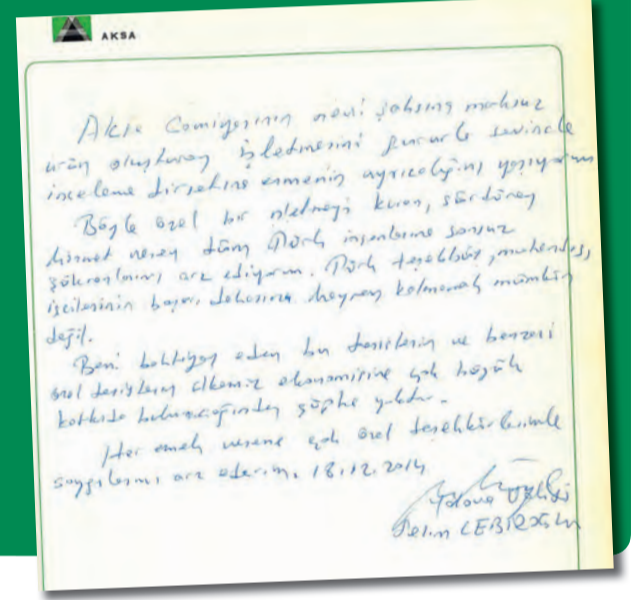 AKSA
Aksa Camiasının nevi şahsına mahsus
ürün oluşturan işletmesini gururla sevinçle
inceleme fırsatına ermenin ayrıcalığını yaşıyorum
Böyle özel bir işletmeyi kuran, sürdüren
hizmet veren tüm Türk insanlarına sonsuz
şükranlarımı arz ediyorum. Türk teşebbüs, mühendis,
işçilerinin başarı dehasına hayran kalmamak mümkün
değil.
Beni bahtiyar eden bu tesislerin ve benzeri
özel tesislerin ülkemiz ekonomisine çok büyük
katkıda bulunacağından şüphe yoktur.
Her emek verene çok özel teşekkürlerimle
saygılarımı arz ederim. 18.12.2014
Yalova Valisi
Selim CEBİROĞLU